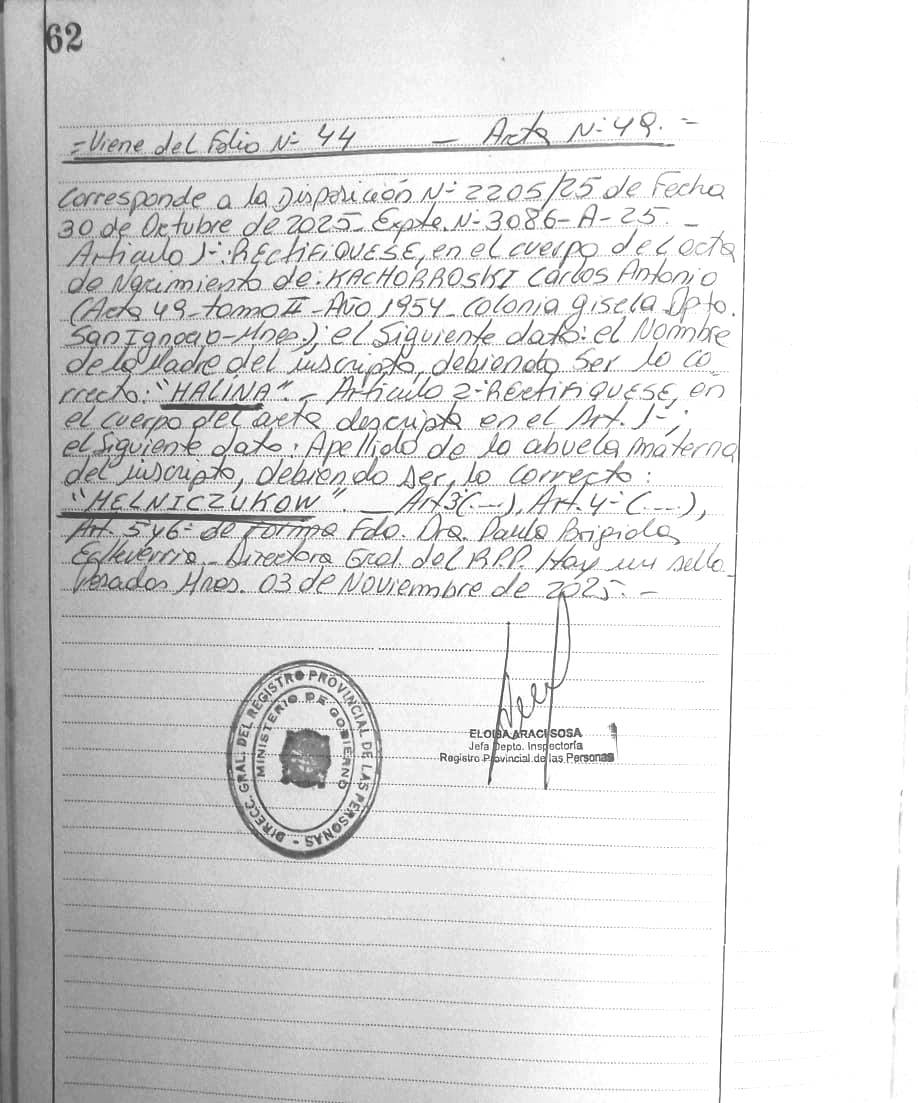 62
= Viene del Folio N- 44 — Acta N- 49. =
Corresponde a la Disposición N- 2205/25 de Fecha
30 de Octubre de 2025- Expte. N- 3086-A-25. -
Articulo 1-: RECTIFIQUESE, en el cuerpo del acta
de Nacimiento de: KACHORROSKI Carlos Antonio
(Acta 49- tomo II - Año 1954- Colonia Gisela Dpto.
San Ignacio-Mnes.); el Siguiente dato: el Nombre
de la Madre del inscripto, debiendo ser lo co-
rrecto: "HALINA". - Articulo 2-: RECTIFIQUESE, en
el cuerpo del acta descripta en el Art. 1-;
el Siguiente dato: Apellido de la abuela materna
del inscripto, debiendo ser, lo correcto:
"MELNICZUKOW". — Art 3 (...), Art. 4- (...),
Art. 5 y 6- de Forma Fdo. Dra. Paula Brigida
Echeverria - Directora Gral. del R.P.P. Hay un sello -
Posadas Mnes. 03 de Noviembre de 2025. -
DIRECC. GRAL. DEL REGISTRO PROVINCIAL DE LAS PERSONAS -
MINISTERIO DE GOBIERNO
ELOISA ARACI SOSA
Jefa Depto. Inspectoría
Registro Provincial de las Personas